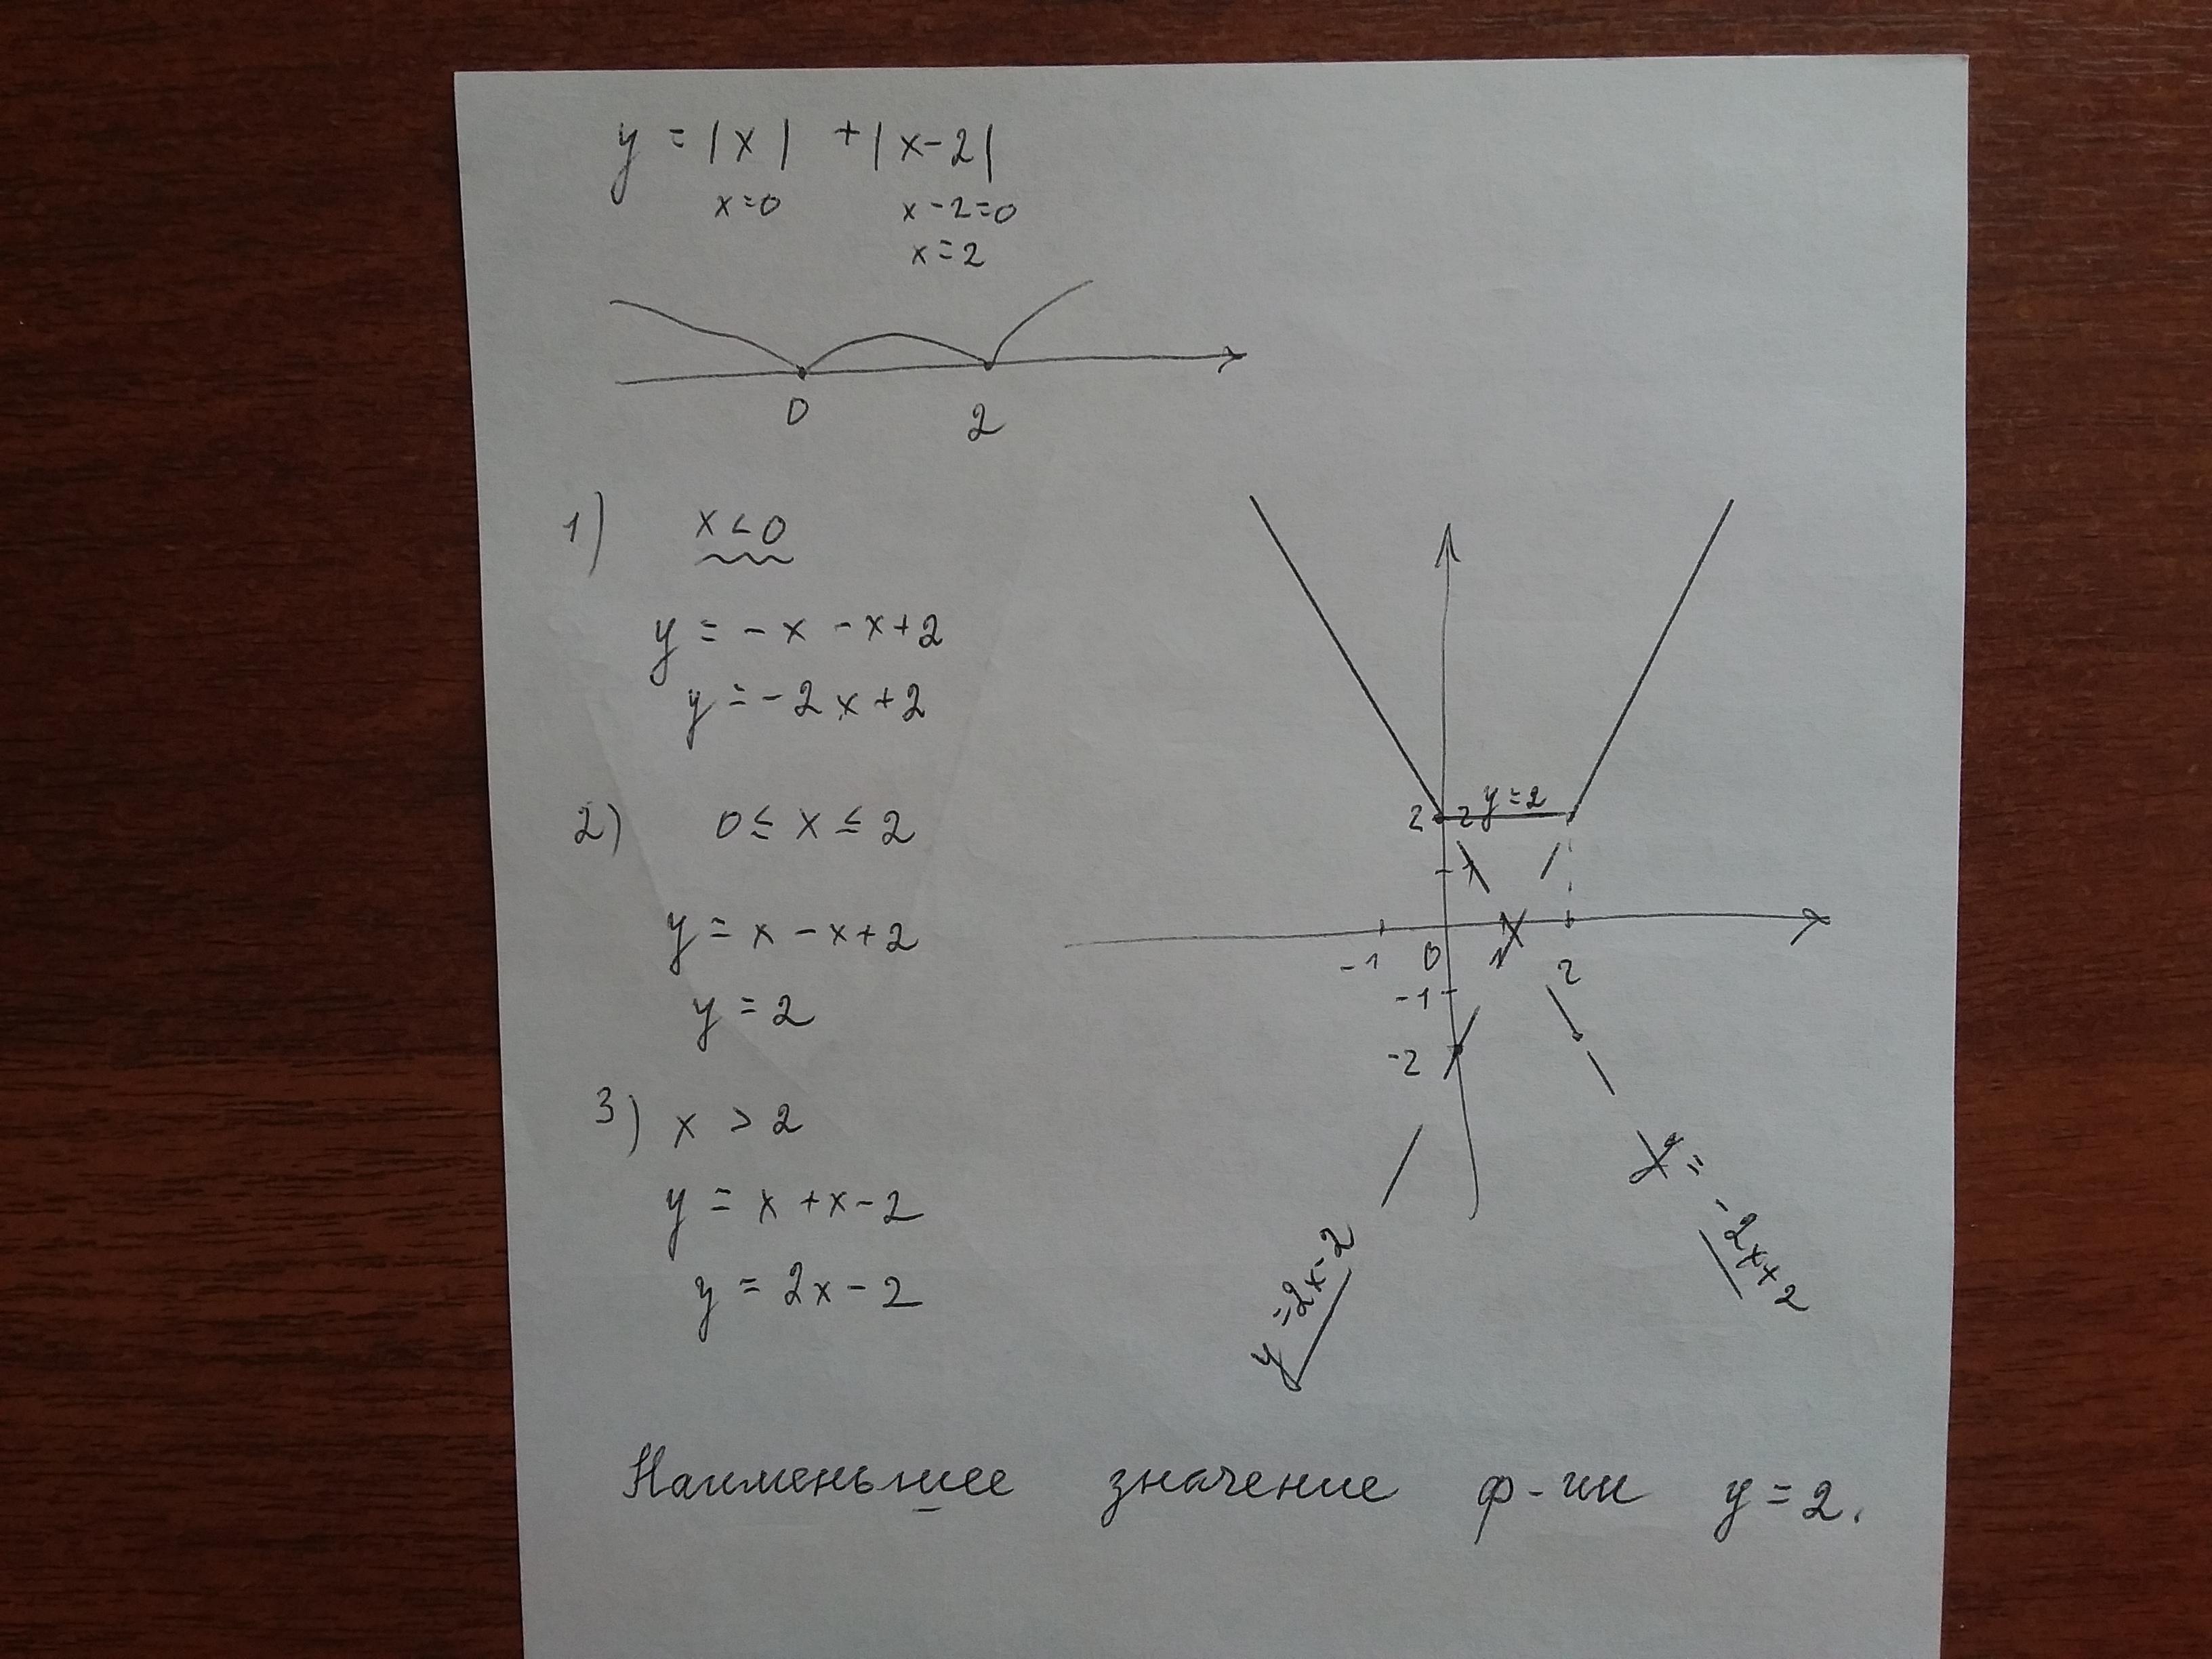 y = |x| + |x-2|
x=0 x-2=0
x=2
0 2
1) x<0
y = -x -x+2
y = -2x+2
2) 0 ≤ x ≤ 2
y = x -x+2
y = 2
3) x > 2
y = x +x-2
y = 2x-2
2 2 y=2
-1 0 1 2
-1
-2
y=2x-2
y=-2x+2
Наименьшее значение ф-ии y=2.